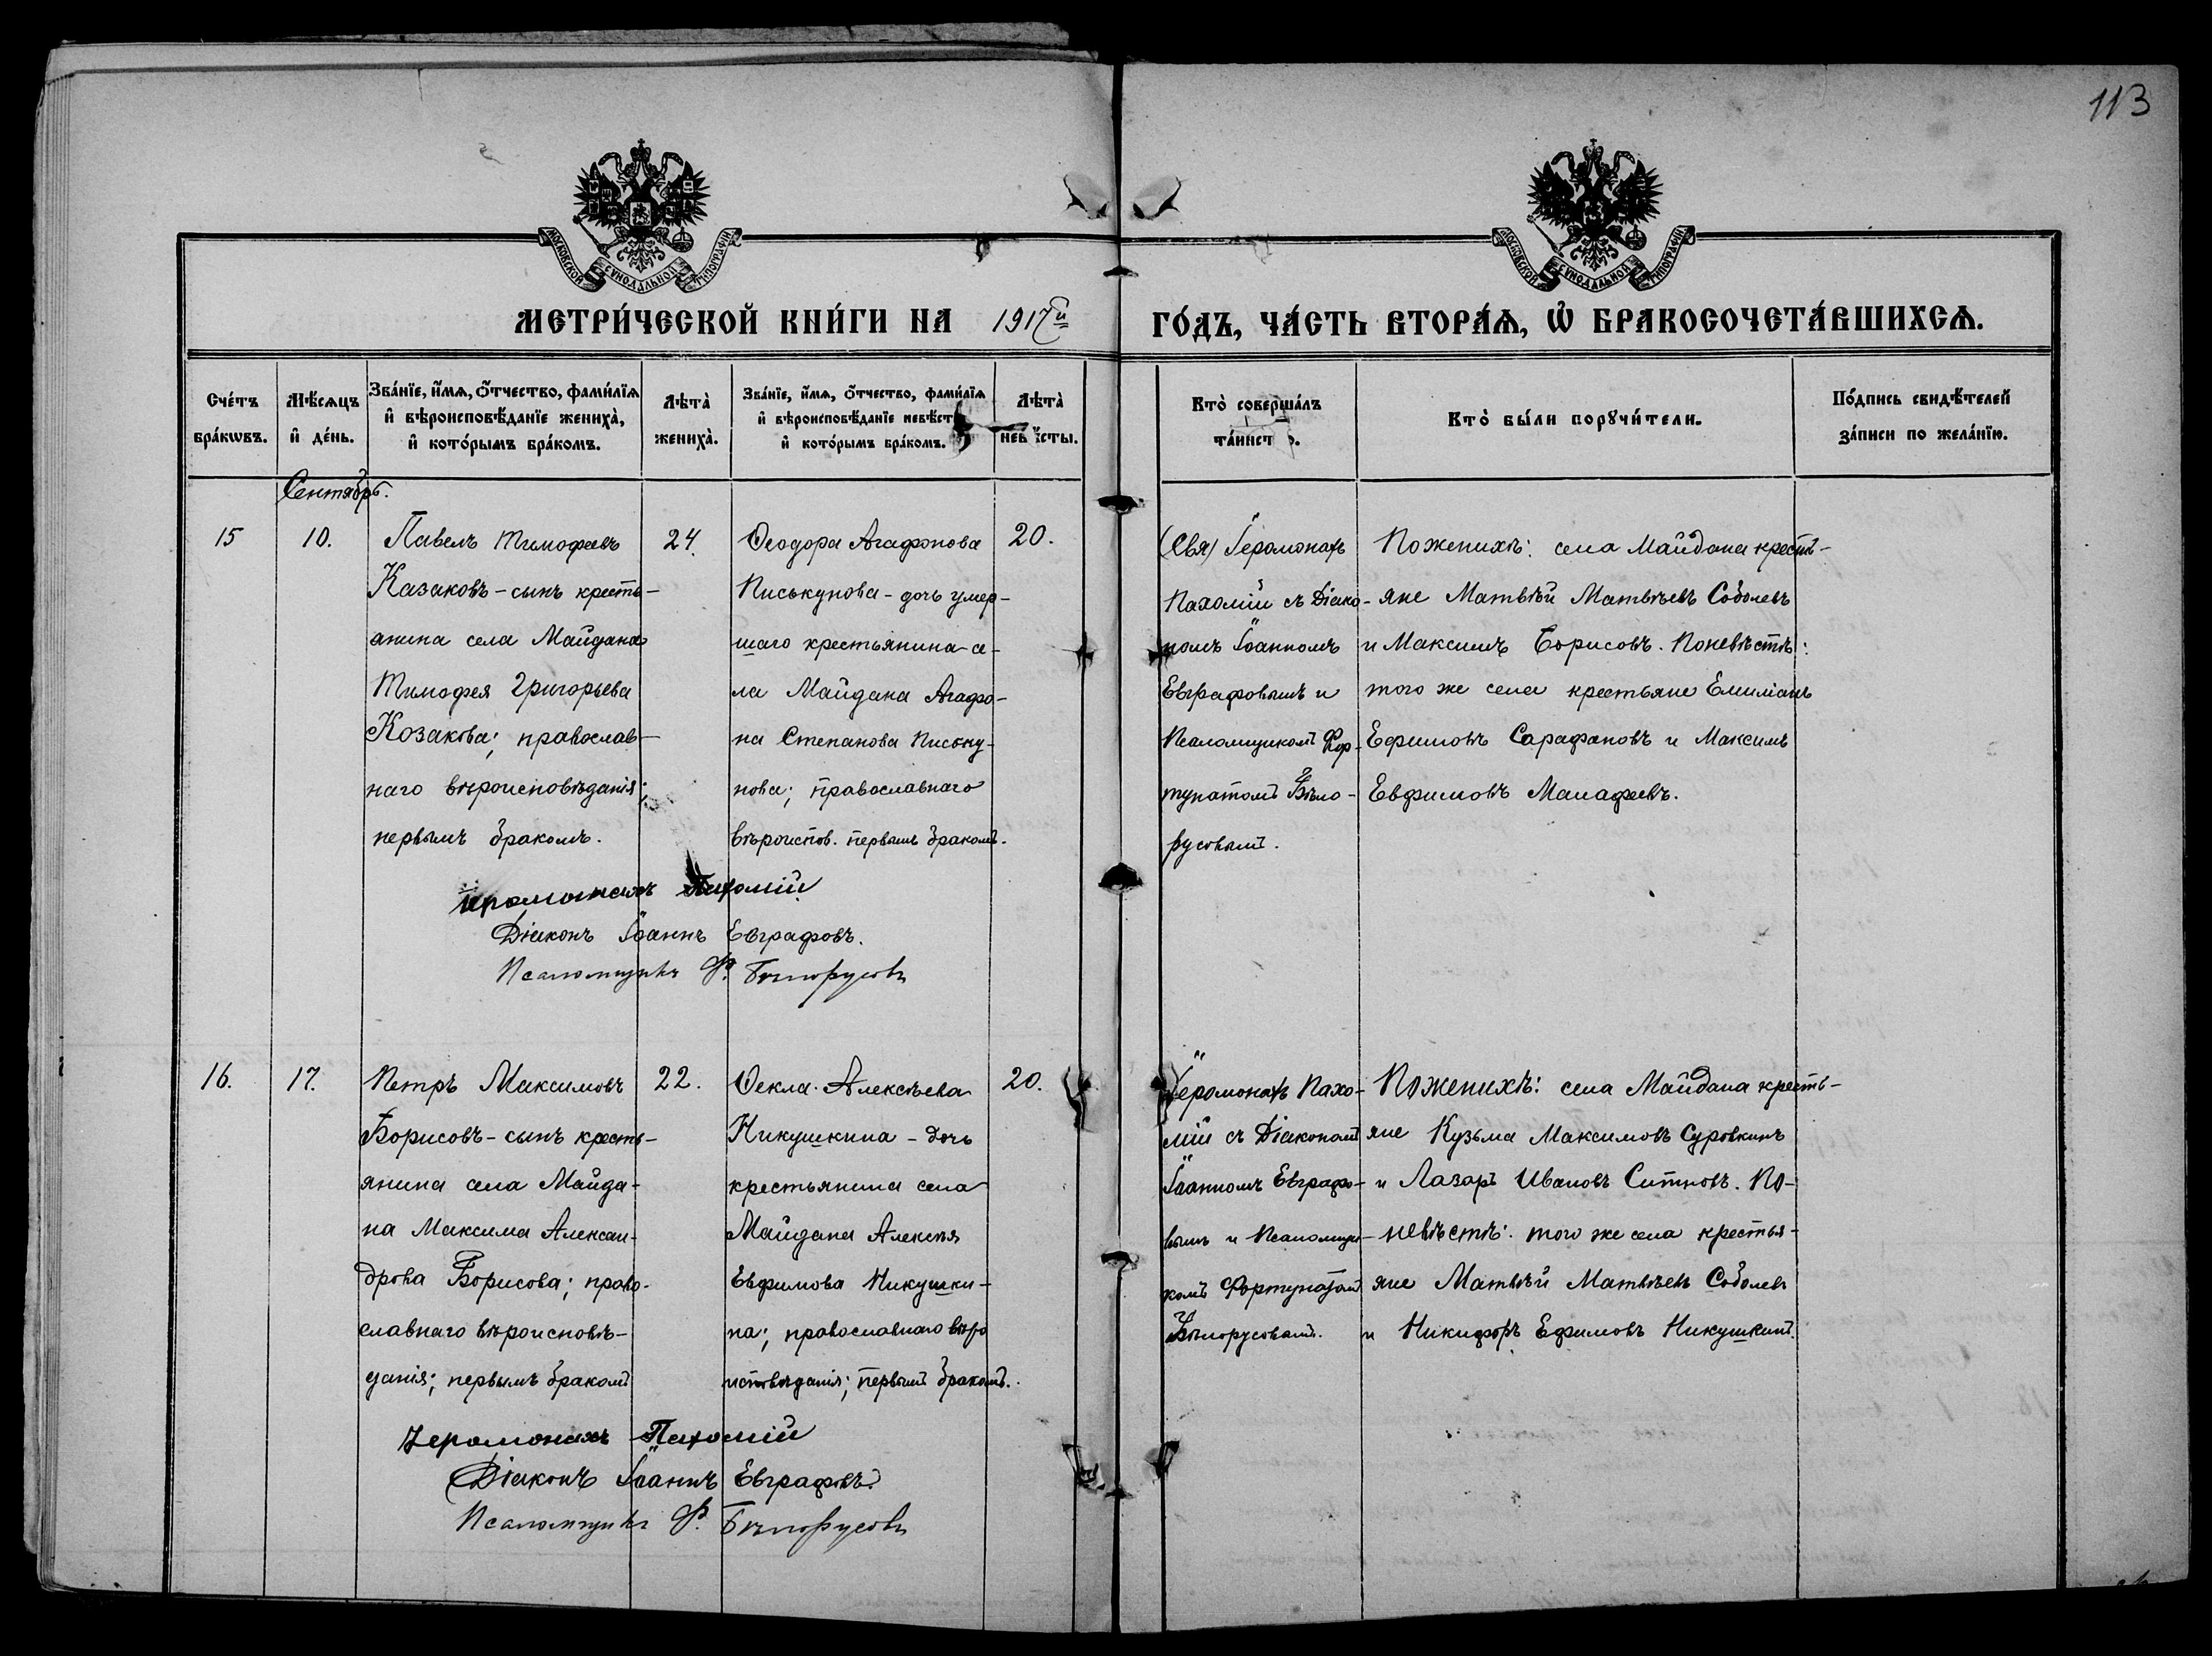 113
МОСКОВСКОЙ СѴНОДАЛЬНОЙ ТИПОГРАФІИ
МОСКОВСКОЙ СѴНОДАЛЬНОЙ ТИПОГРАФІИ
МЕТРИ́ЧЕСКОЙ КНИ́ГИ НА 1917й
ГО́ДЪ, ЧА́СТЬ ВТОРА́Ѧ, Ѡ҆ БРАКОСОЧЕТА́ВШИХСѦ.
Сче́тъ
бра́кѡвъ.
Мѣ́сѧцъ
и҆ де́нь.
Зва́нїе, и҆́мѧ, ѻ҆́тчество, фами́лїѧ
и҆ вѣроисповѣ́данїе жениха̀,
и҆ кото́рымъ бра́комъ.
Лѣта̀
жениха̀.
Зва́нїе, и҆́мѧ, ѻ҆́тчество, фами́лїѧ
и҆ вѣроисповѣ́данїе невѣ́ст
и҆ кото́рымъ бра́комъ.
Лѣта̀
невѣ́сты.
Кто̀ соверша́лъ
та́инст о.
Кто̀ бы́ли порꙋчи́тели.
По́дпись свидѣ́телей
за́писи по жела́нїю.
Сентябрь.
15
10.
Павелъ Тимофеевъ
Казаковъ - сынъ кресть-
янина села Майдана
Тимофея Григорьева
Козакова; православ-
наго вѣроисповѣданія;
первымъ бракомъ.
24.
Ѳеодора Агафонова
Писькунова - дочь умер-
шаго крестьянина се-
ла Майдана Агафо-
на Степанова Писку-
нова; православнаго
вѣроиспов. первымъ бракомъ.
20.
(Свя) Іеромонахъ
Пахомій съ Діако-
номъ Іоанномъ
Евграфовымъ и
Псаломщикомъ Фор-
тунатомъ Бѣло-
русовымъ.
По женихѣ: села Майдана кресть-
яне Матвѣй Матвѣевъ Соболевъ
и Максимъ Борисовъ. По невѣстѣ:
того же села крестьяне Емиліанъ
Ефимовъ Сарафановъ и Максимъ
Евфимовъ Малафеевъ.
Іеромонахъ Пахомій
Діаконъ Іоаннъ Евграфовъ.
Псаломщикъ Ф. Бѣлорусовъ
16.
17.
Петръ Максимовъ
Борисовъ - сынъ кресть-
янина села Майда-
на Максима Алексан-
дрова Борисова; право-
славнаго вѣроисповѣ-
данія; первымъ бракомъ
22.
Ѳекла Алексѣева
Никушкина - дочь
крестьянина села
Майдана Алексѣя
Евфимова Никушки-
на; православнаго вѣро
исповѣданія; первымъ бракомъ.
20.
Іеромонахъ Пахо-
мій съ Діакономъ
Іоанномъ Евграфо-
вымъ и Псаломщи-
комъ Фортунатомъ
Бѣлорусовымъ.
По женихѣ: села Майдана кресть-
яне Кузьма Максимовъ Суровкинъ
и Лазарь Ивановъ Ситновъ. По-
невѣстѣ: того же села крестья-
яне Матвѣй Матвѣевъ Соболевъ
и Никифоръ Ефимовъ Никушкинъ.
Іеромонахъ Пахомій
Діаконъ Іоаннъ Евграфовъ
Псаломщикъ Ф. Бѣлорусовъ